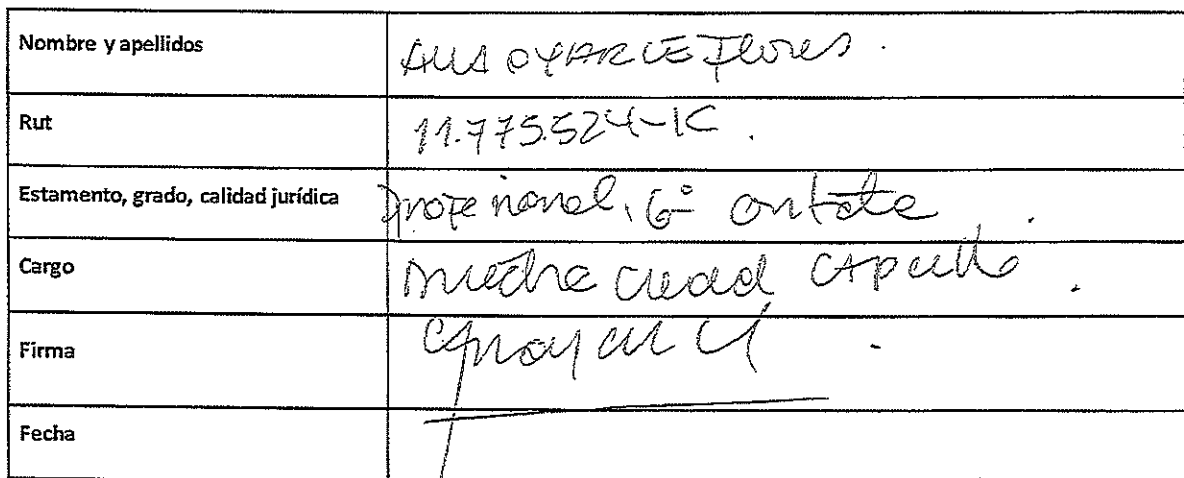 Nombre y apellidos ANA OYARCE Flores.
Rut 11.775.524-K.
Estamento, grado, calidad jurídica Profesional, 6º contrata.
Cargo
Firma
Fecha